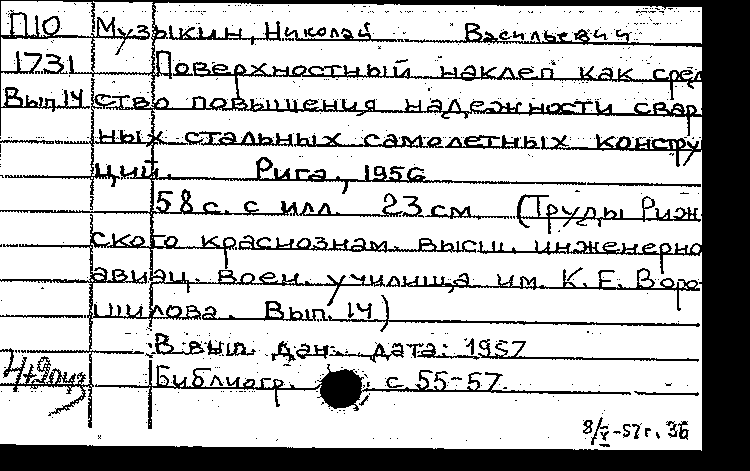 П10 Музыкин, Николай Васильевич
1731 Поверхностный наклеп как сред
Вып. 14 ство повышения надежности свар
ных стальных самолетных констру
ций. Рига, 1956
58 с. с илл. 23 см. (Труды Риж
ского краснознам. высш. инженерно
авиац. воен. училища им. К. Е. Воро
шилова. Вып. 14)
В вып. дан. дата: 1957
Библиогр. с. 55-57.
8/X-57 г. ЗБ